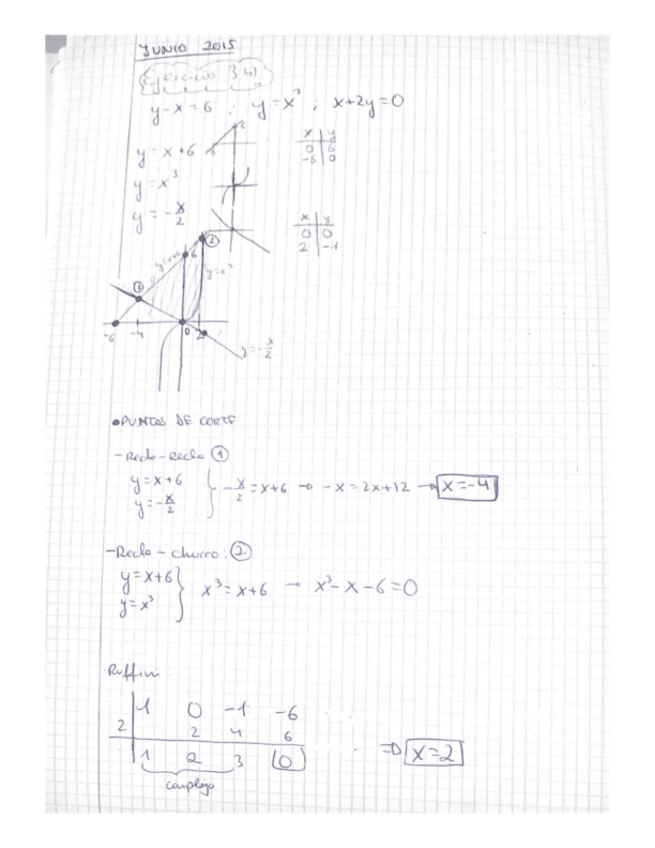 JUNIO 2015
Ejercicio 3 b)
y - x = 6 ; y = x³ ; x + 2y = 0
y = x + 6
x | y
0 | 6
-6 | 0
y = x³
y = -x/2
x | y
0 | 0
2 | -1
y = x+6
y = x³
① ②
6
-6 -4 0 2
y = -x/2
• PUNTOS DE CORTE
- Recta - Recta ①
y = x + 6
y = -x/2 } -x/2 = x + 6 → -x = 2x + 12 → x = -4
- Recta - churro: ②
y = x + 6
y = x³ } x³ = x + 6 → x³ - x - 6 = 0
Ruffini
1 0 -1 -6
2 2 4 6
1 2 3 0 ⇒ x = 2
complejo